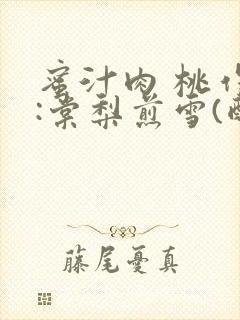 蜜汁肉桃
:棠梨煎雪(
藤尾憂真